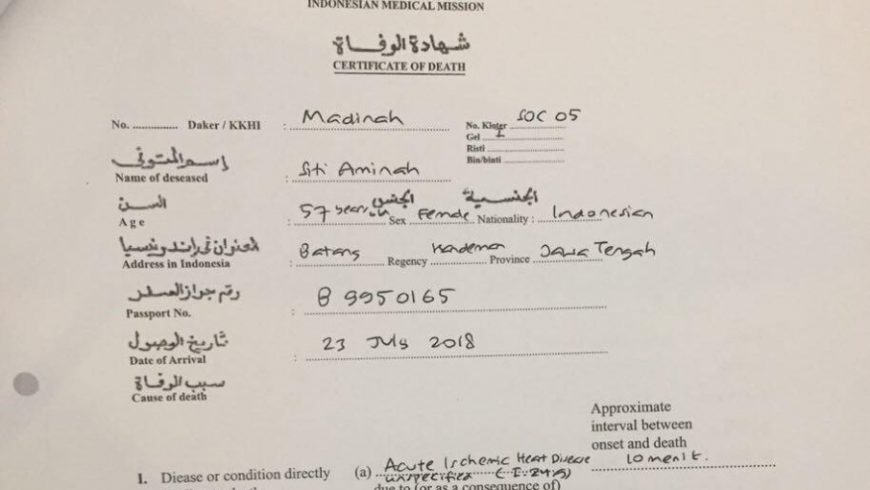 INDONESIAN MEDICAL MISSION
شهادة الوفاة
CERTIFICATE OF DEATH
No. .............. Daker / KKHI : Madinah
No. Kloter SOC 05
Gel I
Risti
Bin/binti
إسم المتوفي
Name of deseased : Siti Aminah
السن الجنس الجنسية
Age : 57 years Sex Female Nationality : Indonesian
العنوان في إندونيسيا
Address in Indonesia : Batang Regency Province Jawa Tengah
رقم جواز السفر
Passport No. : B 9950165
تاريخ الوصول
Date of Arrival : 23 July 2018
سبب الوفاة
Cause of death
Approximate
interval between
onset and death
1. Diease or condition directly (a) Acute Ischemic Heat Disease 10 menit.
unspecified (I.24.9)
due to (or as a consequence of)